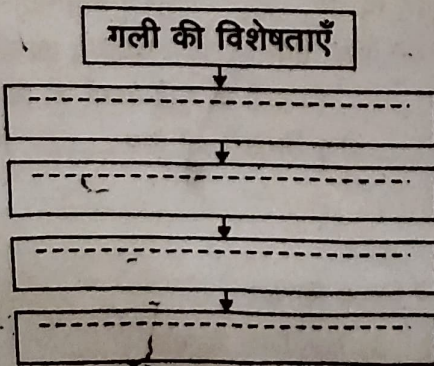 गली की विशेषताएँ